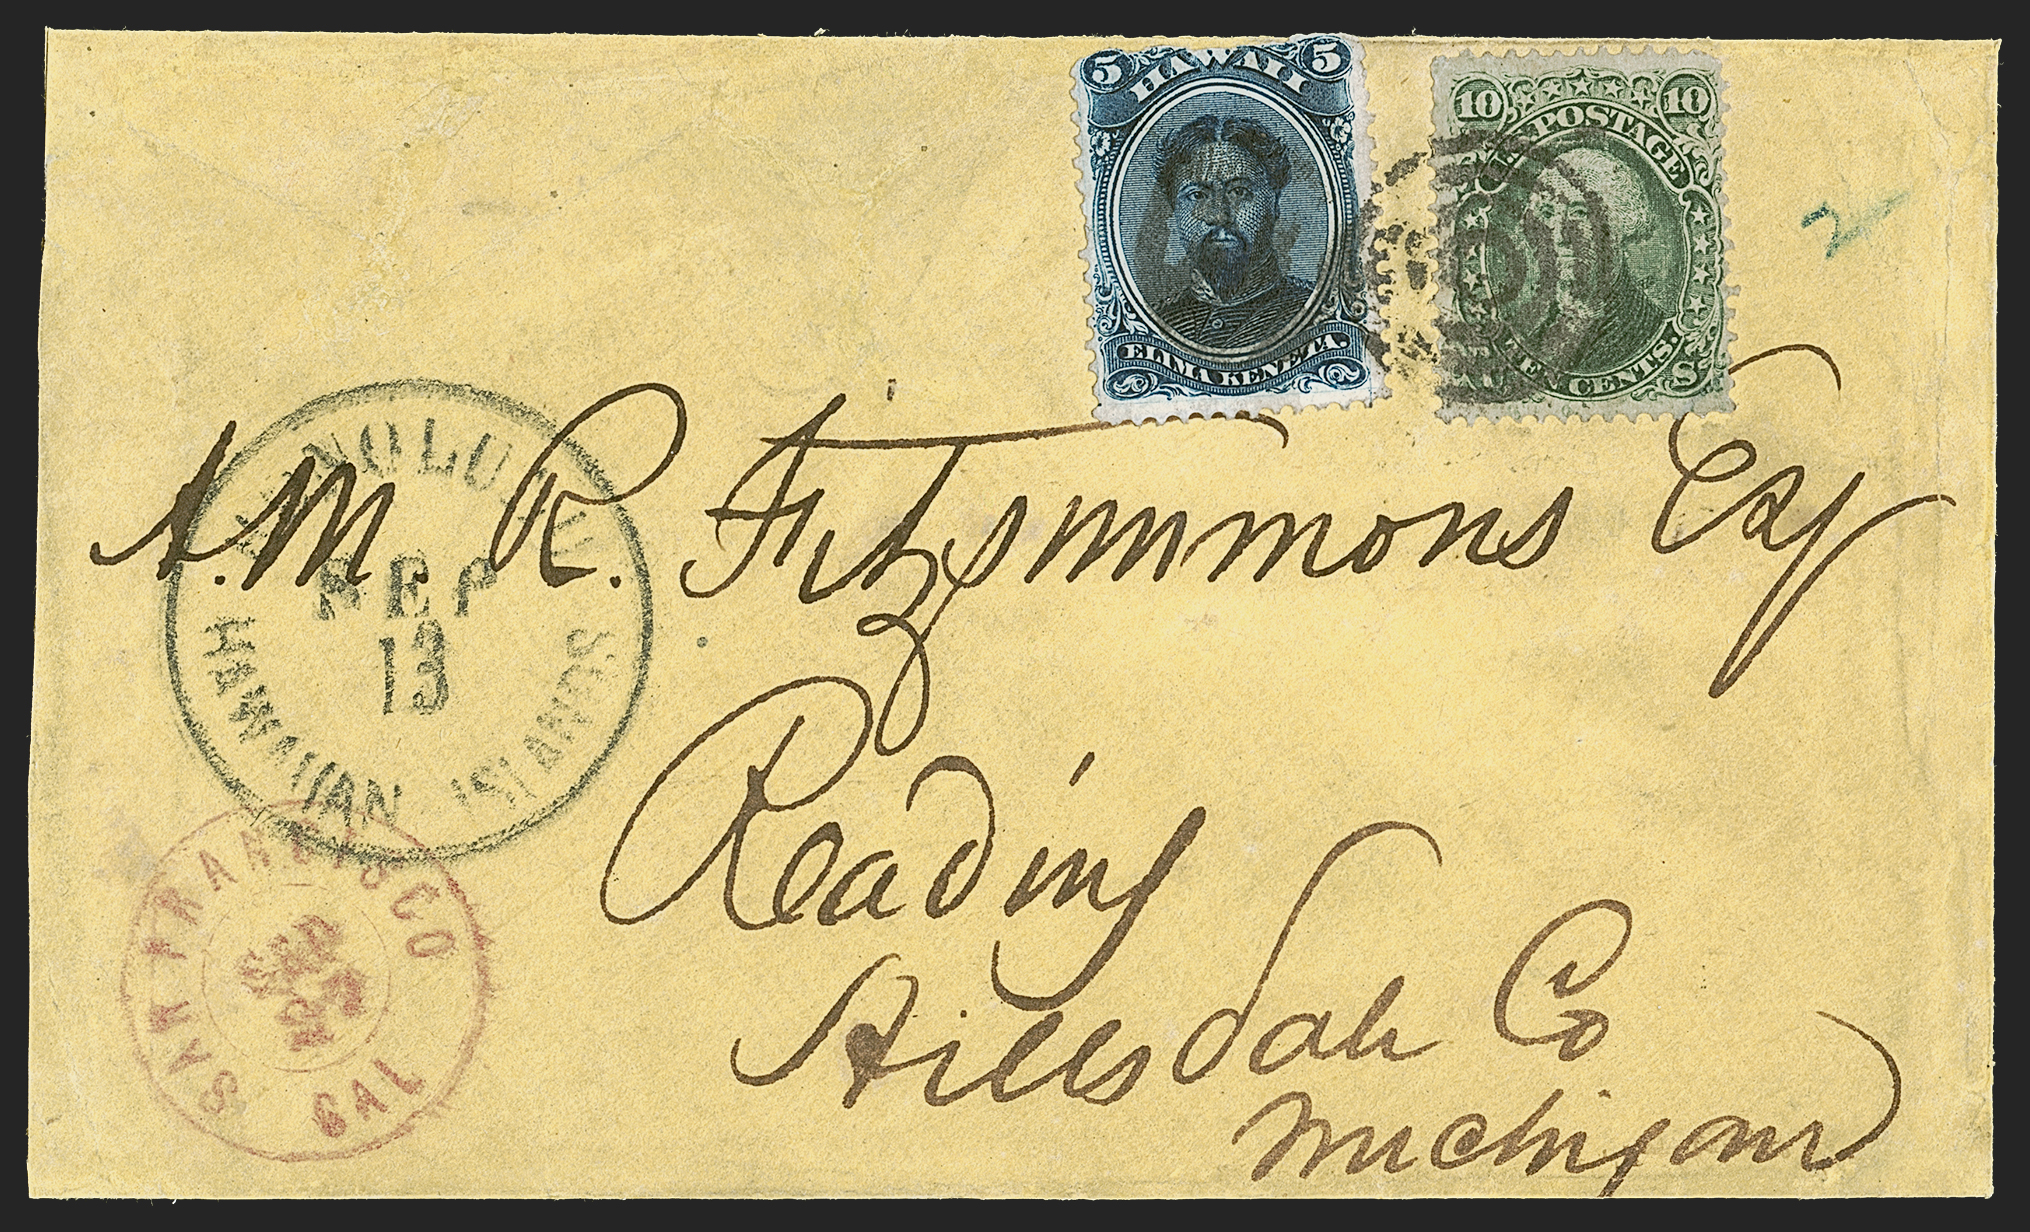 5 HAWAII 5
ELIMA KENETA.
10 POSTAGE 10
TEN CENTS.
S
2
HONOLULU
SEP
13
HAWAIIAN ISLANDS
A.M. R. Fitzsimmons Esq
Reading
Hillsdale Co
Michigan
SAN FRANCISCO
SEP
27
CAL